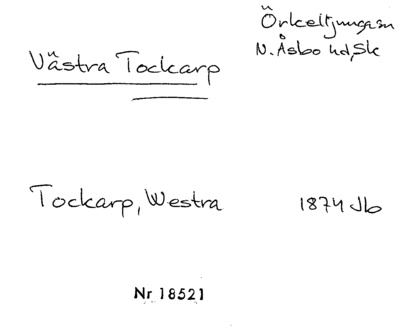 Örkeltjunga sn
N. Åsbo hd, Sk
Västra Tockarp
Tockarp, Westra 1874 Jb
Nr 18521